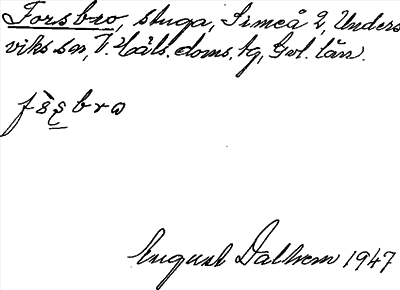 Forsbro, stuga, Simeå 2, Unders
viks sn, V. Häls. doms. tg, Gvl. län.
fs̀s̨bro
August Dalhem 1947